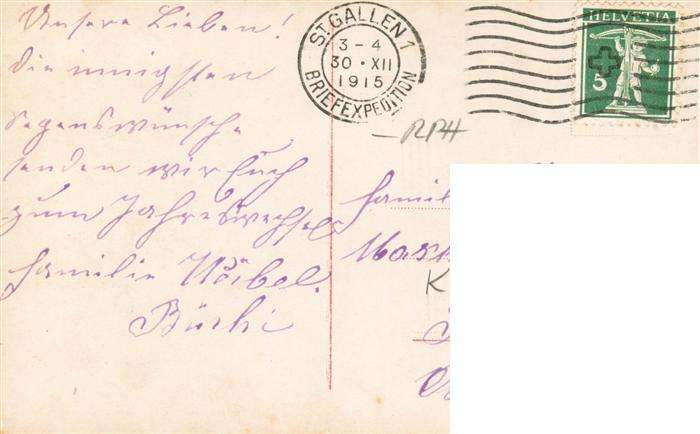 Unsere Lieben!
die innigsten
Segenswünsche
senden wir Euch
zum Jahreswechsel
Familie Weibel.
ST. GALLEN 1
3-4
30·XII
1915
BRIEFEXPEDITION
HELVETIA
5
RPH
K